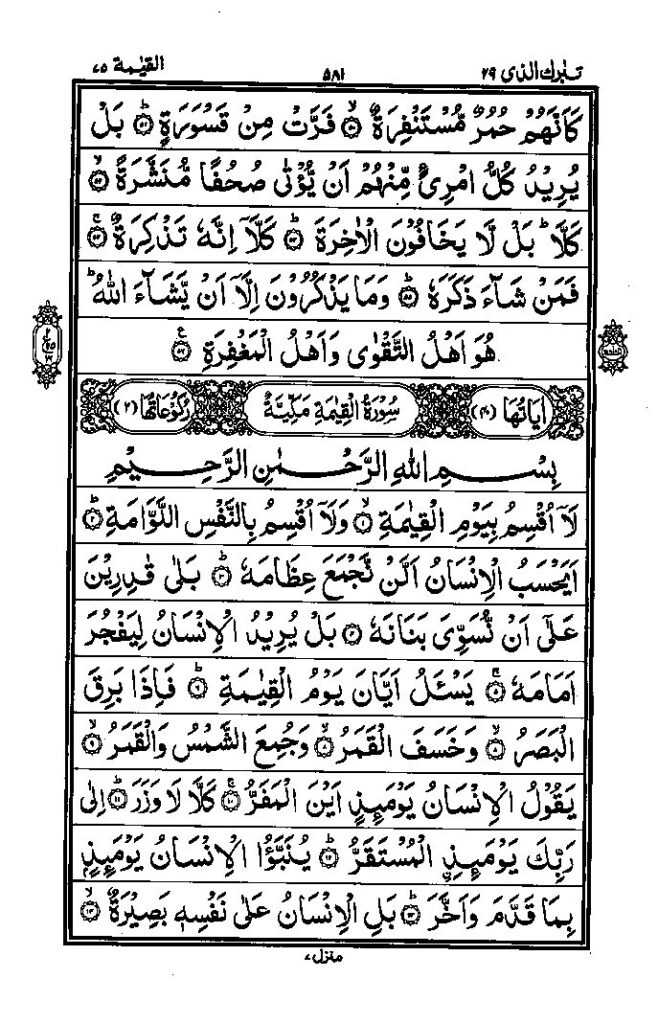 تبٰرك الذی ۲۹ ۵۸۱ القیٰمة ۷۵
كَاَنَّهُمْ حُمُرٌ مُّسْتَنْفِرَةٌ ۙ﴿۵۰﴾ فَرَّتْ مِنْ قَسْوَرَةٍ ؕ﴿۵۱﴾ بَلْ
يُرِيْدُ كُلُّ امْرِئٍ مِّنْهُمْ اَنْ يُّؤْتٰى صُحُفًا مُّنَشَّرَةً ۙ﴿۵۲﴾
كَلَّا ؕ بَلْ لَّا يَخَافُوْنَ الْاٰخِرَةَ ؕ﴿۵۳﴾ كَلَّاۤ اِنَّهٗ تَذْكِرَةٌ ۚ﴿۵۴﴾
فَمَنْ شَآءَ ذَكَرَهٗ ؕ﴿۵۵﴾ وَمَا يَذْكُرُوْنَ اِلَّاۤ اَنْ يَّشَآءَ اللّٰهُ ؕ
هُوَ اَهْلُ التَّقْوٰى وَاَهْلُ الْمَغْفِرَةِ ﴿۵۶﴾ ع
اٰیَاتُهَا (۴۰) سُوْرَةُ الْقِيٰمَةِ مَكِّيَّةٌ رُكُوْعَاتُهَا (۲)
بِسْمِ اللّٰهِ الرَّحْمٰنِ الرَّحِيْمِ
لَاۤ اُقْسِمُ بِيَوْمِ الْقِيٰمَةِ ۙ﴿۱﴾ وَلَاۤ اُقْسِمُ بِالنَّفْسِ اللَّوَّامَةِ ؕ﴿۲﴾
اَيَحْسَبُ الْاِنْسَانُ اَلَّنْ نَّجْمَعَ عِظَامَهٗ ؕ﴿۳﴾ بَلٰى قٰدِرِيْنَ
عَلٰۤى اَنْ نُّسَوِّيَ بَنَانَهٗ ﴿۴﴾ بَلْ يُرِيْدُ الْاِنْسَانُ لِيَفْجُرَ
اَمَامَهٗ ۚ﴿۵﴾ يَسْـَٔلُ اَيَّانَ يَوْمُ الْقِيٰمَةِ ؕ﴿۶﴾ فَاِذَا بَرِقَ
الْبَصَرُ ۙ﴿۷﴾ وَخَسَفَ الْقَمَرُ ۙ﴿۸﴾ وَجُمِعَ الشَّمْسُ وَالْقَمَرُ ۙ﴿۹﴾
يَقُوْلُ الْاِنْسَانُ يَوْمَئِذٍ اَيْنَ الْمَفَرُّ ۚ﴿۱۰﴾ كَلَّا لَا وَزَرَ ؕ﴿۱۱﴾ اِلٰى
رَبِّكَ يَوْمَئِذِ ِۨالْمُسْتَقَرُّ ؕ﴿۱۲﴾ يُنَبَّؤُا الْاِنْسَانُ يَوْمَئِذٍۭ
بِمَا قَدَّمَ وَاَخَّرَ ؕ﴿۱۳﴾ بَلِ الْاِنْسَانُ عَلٰى نَفْسِهٖ بَصِيْرَةٌ ۙ﴿۱۴﴾
منزل ۷